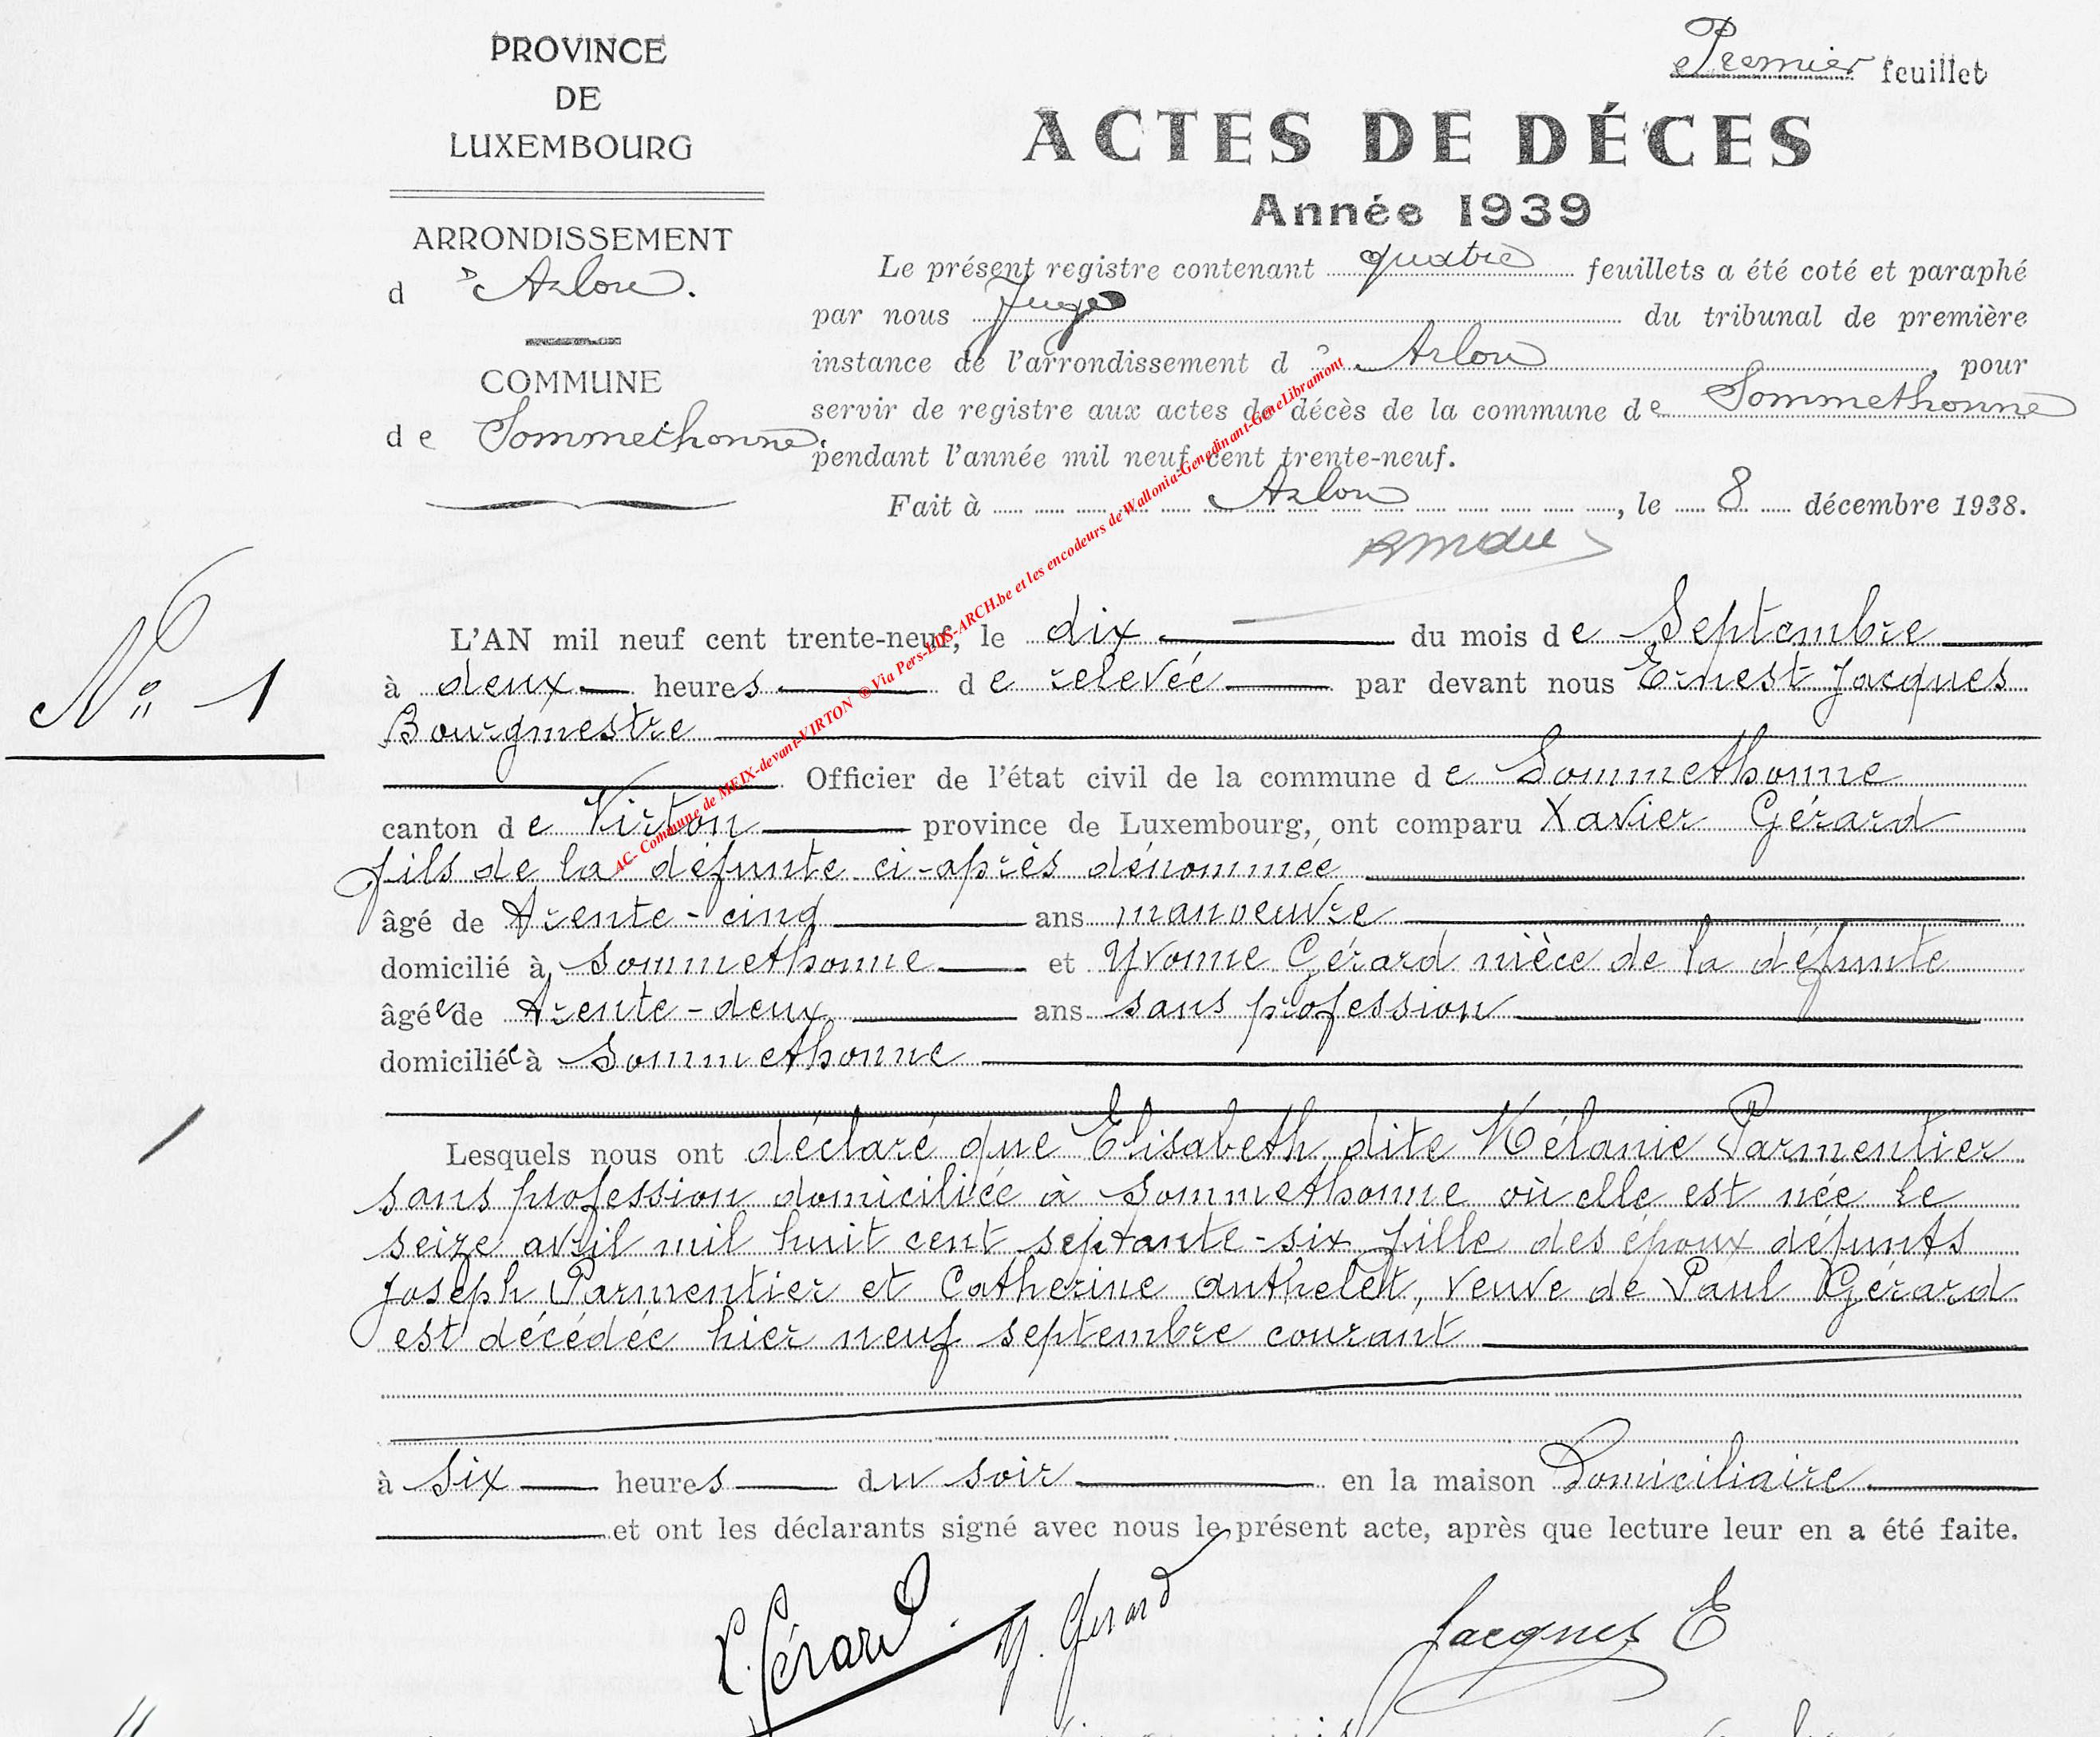 PROVINCE
DE
LUXEMBOURG
ARRONDISSEMENT
d' Arlon.
COMMUNE
de Sommethonne.
Premier feuillet
ACTES DE DÉCES
Année 1939
Le présent registre contenant quatre feuillets a été coté et paraphé
par nous Juge du tribunal de première
instance de l'arrondissement d' Arlon, pour
servir de registre aux actes de décès de la commune de Sommethonne
pendant l'année mil neuf cent trente-neuf.
Fait à Arlon, le 8 décembre 1938.
AC- Commune de MEIX-devant-VIRTON ®Via Pers-LDS-ARCH.be et les encodeurs de Wallonia-Genedinant-GeneLibramont
N° 1
L'AN mil neuf cent trente-neuf, le dix du mois de Septembre
à deux heures de relevée par devant nous Ernest Jacques
Bourgmestre
Officier de l'état civil de la commune de Sommethonne
canton de Virton province de Luxembourg, ont comparu Xavier Gérard
fils de la défunte ci-après dénommée
âgé de trente-cinq ans manoeuvre
domicilié à Sommethonne et Yvonne Gérard nièce de la défunte
âgée de trente-deux ans sans profession
domiciliée à Sommethonne
Lesquels nous ont déclaré que Elisabeth dite Mélanie Parmentier
sans profession domiciliée à Sommethonne où elle est née le
seize avril mil huit cent septante-six fille des époux défunts
Joseph Parmentier et Catherine Anthelet, veuve de Paul Gérard
est décédée hier neuf septembre courant
à six heures du soir en la maison Domiciliaire
et ont les déclarants signé avec nous le présent acte, après que lecture leur en a été faite.
X. Gérard. Y. Gerard Jacques E